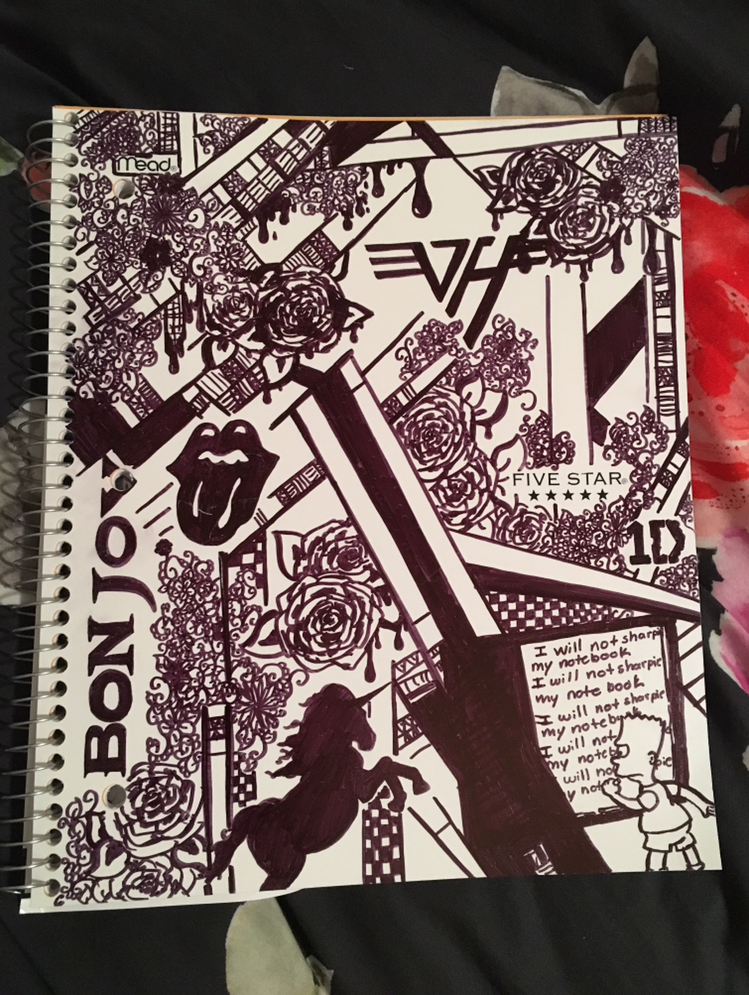 Mead
VH
FIVE STAR®
★★★★★
1D
BON JOV
I will not sharpi
my notebook
I will not sharpie
my note book
I will not sharpie
my notebook
I will not
my noteb pie
will no
y not